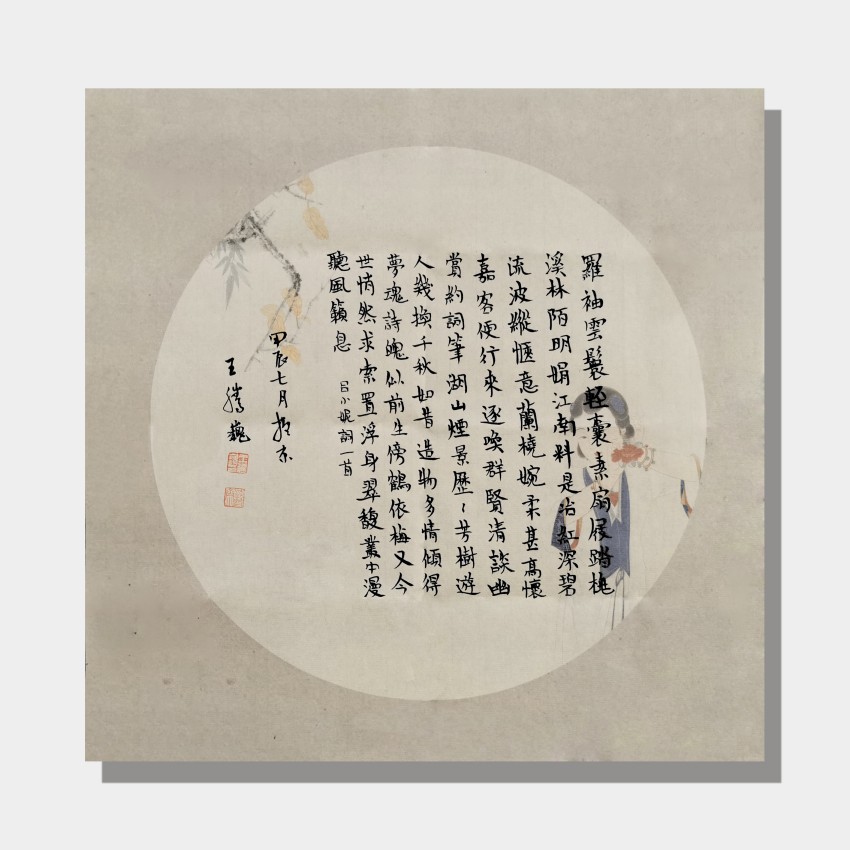 羅袖雲鬟輕囊素扇屐踏桃
溪林陌明娟江南料是沿紅深碧
流波縱愜意蘭橈婉柔甚高懷
嘉客便行來逐喚群賢清談幽
賞約詞筆湖山煙景歷〻芳樹遊
人幾換千秋如昔造物多情傾得
夢魂詩魄似前生傍鶴依梅又今
世悄然求索置浮身翠馥叢中漫
聽風籟息
呂小妮詞一首
甲辰七月於京
王騰巍